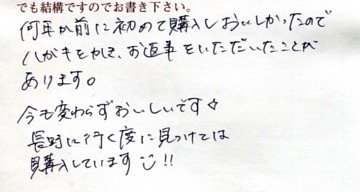 でも結構ですのでお書き下さい。
何年か前に初めて購入しおいしかったので
ハガキをかきて、お返事をいただいたことが
あります。
今も変わらずおいしいです☆
長野に行く度に見つけては
購入しています!!